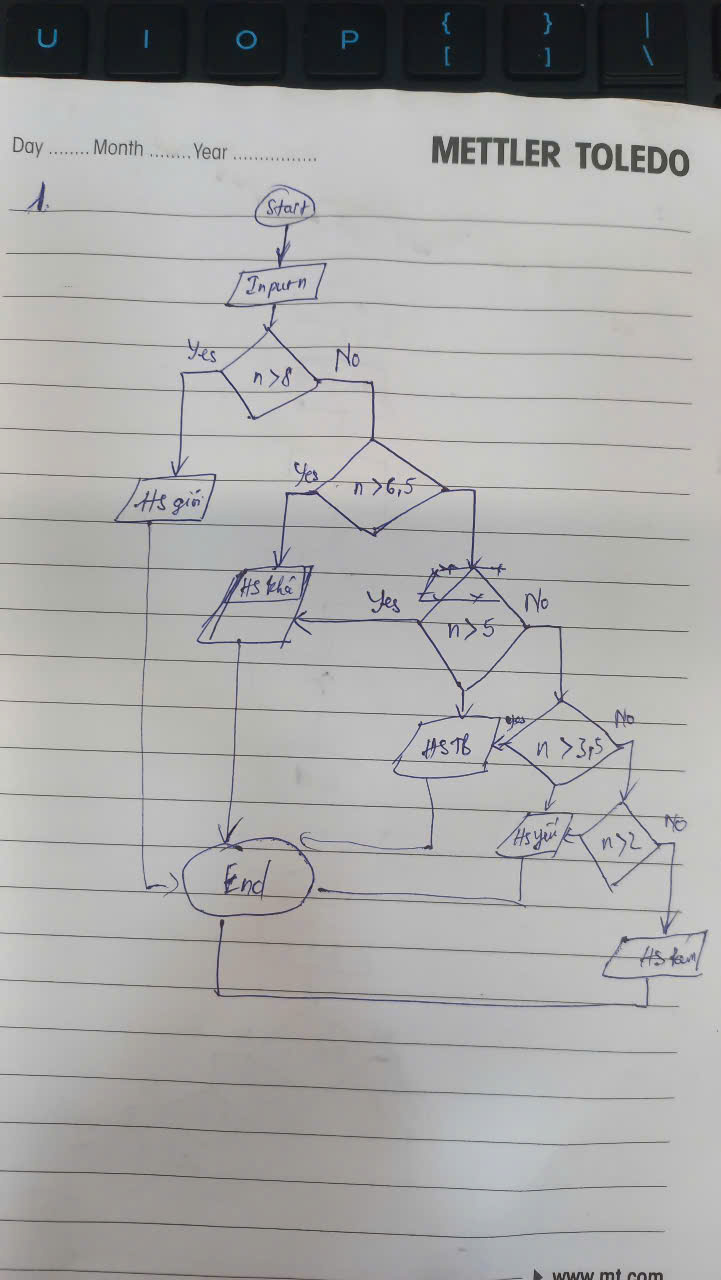 U I O P { [ } ] | \
Day ........ Month ........ Year ................
METTLER TOLEDO
1.
Start
Input n
Yes
n>8
No
HS giỏi
Yes
n>6,5
HS khá
Yes
n>5
No
HSTB
Yes
n>3,5
No
HS yếu
n>2
No
End
HS kém
www.mt.com